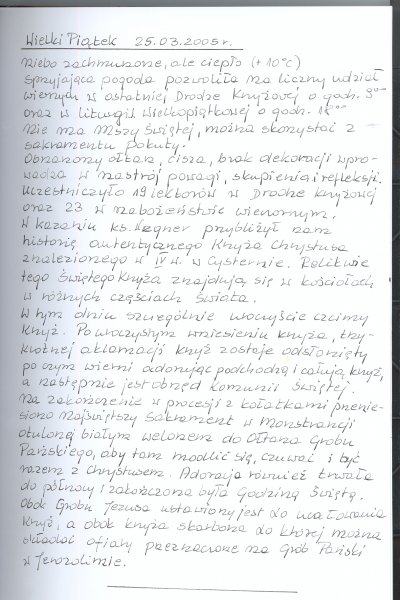 Wielki Piątek 25.03.2005 r.
Niebo zachmurzone, ale ciepło (+10°C)
Sprzyjająca pogoda pozwoliła na liczny udział
wiernych w ostatniej Drodze Krzyżowej o godz. 9⁰⁰
oraz w liturgii Wielkopiątkowej o godz. 18⁰⁰
Nie ma Mszy Świętej, można skorzystać z
sakramentu pokuty.
Obnażony ołtarz, cisza, brak dekoracji wpro-
wadza w nastrój powagi, skupienia i refleksji.
Uczestniczyło 19 lektorów w Drodze Krzyżowej
oraz 23 w nabożeństwie wieczornym.
W kazaniu ks. Wagner przybliżył nam
historię autentycznego Krzyża Chrystusa
znalezionego w IV w. w cysternie. Relikwie
tego Świętego Krzyża znajdują się w kościołach
w różnych częściach świata.
W tym dniu szczególnie uroczyście czcimy
Krzyż. Po uroczystym wniesieniu krzyża, trzy-
krotnej aklamacji krzyż zostaje odsłonięty
po czym wierni adorując podchodzą i całują krzyż,
a następnie jest obrzęd komunii świętej.
Na zakończenie w procesji z kołatkami przenie-
siono Najświętszy Sakrament w Monstrancji
otulonej białym welonem do Ołtarza Grobu
Pańskiego, aby tam modlić się, czuwać i być
razem z Chrystusem. Adoracja również trwała
do północy i zakończona była Godziną Świętą.
Obok Grobu Jezusa ustawiony jest do ucałowania
Krzyż, a obok krzyża skarbona do której można
składać ofiary przeznaczone na Grób Pański
w Jerozolimie.